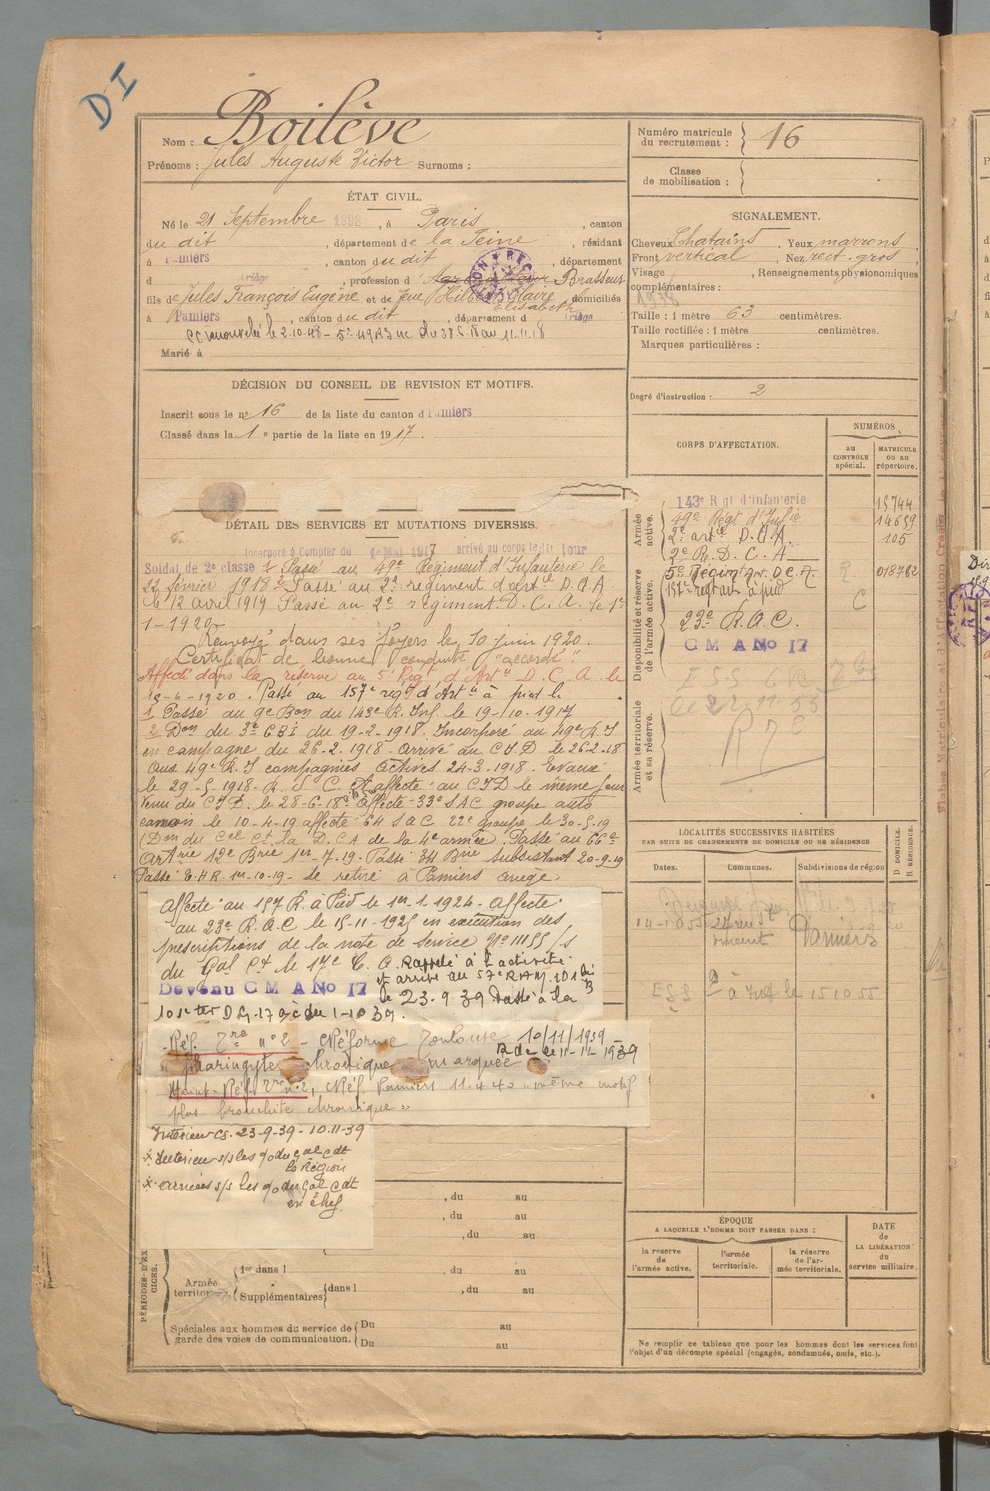 DI
Nom : Boilève
Prénoms : Jules Auguste Victor Surnoms :
ÉTAT CIVIL.
Né le 21 Septembre 1898, à Paris, canton
du dit, département de la Seine, résidant
à Pamiers, canton du dit, département
d Ariège, profession d' Brasseur
fils de Jules François Eugène et de Elisabeth, domiciliés
à Pamiers, canton du dit, département d Ariège
le 2.10.48 - 5: 49 R I au 11.11.18
Marié à
DÉCISION DU CONSEIL DE REVISION ET MOTIFS.
Inscrit sous le n° 16 de la liste du canton d Pamiers
Classé dans la 1e partie de la liste en 1917.
DÉTAIL DES SERVICES ET MUTATIONS DIVERSES.
Incorporé à Compter du 1917 arrivé au corps le dit jour
Soldat de 2e classe Passé au 49e Régiment d'Infanterie le
22 février 1918 Passé au 2e régiment d'artie D.C.A
le 12 avril 1919 Passé au 2e régiment D.C.A. le 1er
1-1920
Renvoyé dans ses foyers le 10 juin 1920.
Certificat de bonne conduite "accordé".
Affecté dans la réserve au 5e Régt d'Artie D.C.A le
15-6-1920. Passé au 157e regt d'Artie à pied le
1. Passé au 9e Bon du 143e R. Inf. le 19-10-1917
2 Don du 3e GBI du 19-2-1918. Incorporé au 49e R.I
en campagne du 26-2-1918 arrivé au C I D le 26-2-18
Aux 49e R.I compagnies actives 24-3-1918. Evacué
le 29-5-1918 affecté au CID le même jour
Venu du CID. le 28-6-18 affecté 33e SAC groupe auto
canon le 10-4-19 affecté 64 SAC 22e groupe le 30-5-19
(Don du Cel Ct la DCA de la 4e armée. Passé au 66e
artrie 12e Brie 1er-7-19. Passé 34 Brie Subsistant 20-9-19
Passé E.H.R. 1er-10-19. Se retire à Pamiers ariege.
Affecté au 157 R.A. Pied le 1er-1-1924. Affecté
au 23e R.A.C le 15-11-1925 en exécution des
prescriptions de la note de Service N° 11155/s
du Gal Ct le 17e C.A. Rappelé à l'activité
et arrivé au 57e R A M.
Devenu C M A No 17 le 23.9.39 Passé à la
du 1-10 39.
Réf. n° 2 - CRéforme Toulouse 10/11/1939
le 11-11-1939
pharingyte chronique marquée
Maint. Réf. n°2, CRéf. Pamiers 11.4.40 "même motif
plus bronchite chronique"
Intérieur CS. 23-9-39 - 10.11-39
x Intérieur s/s les 90 du Gal Cdt
la Région
x armées s/s les 90 du Gal Cdt
en chef.
, du au
, du au
, du au
PÉRIODES D'EXERCICES.
Armée territoriale
1re dans l , du au
Supplémentaires dans l , du au
Spéciales aux hommes du service de garde des voies de communication.
Du au
Du au
Numéro matricule du recrutement : 16
Classe de mobilisation :
SIGNALEMENT.
Cheveux Chatains. Yeux marrons
Front vertical, Nez rect. gros
Visage , Renseignements physionomiques
complémentaires :
Taille : 1 mètre 63 centimètres.
Taille rectifiée : 1 mètre centimètres.
Marques particulières :
Degré d'instruction : 2
CORPS D'AFFECTATION.
NUMÉROS
AU CONTRÔLE spécial.
MATRICULE ou au répertoire.
Armée active.
143e Rgt d'infanterie 15744
49e Régt d'Infie 14659
2e artie D.C.A. 105
2e R.D.C.A
Disponibilité et réserve de l'armée active.
5e Régim Art. D.C.A. R 018762
157e regt art à pied
C
23e R.A.C.
C M A No 17
Armée territoriale et sa réserve.
22 11 55
LOCALITÉS SUCCESSIVES HABITÉES
PAR SUITE DE CHANGEMENTS DE DOMICILE OU DE RÉSIDENCE
Dates.
Communes.
Subdivisions de région
D. DOMICILE. R. RÉSIDENCE.
Pamiers
15 10 55
ÉPOQUE
A LAQUELLE L'HOMME DOIT PASSER DANS :
la réserve de l'armée active.
l'armée territoriale.
la réserve de l'armée territoriale.
DATE de LA LIBÉRATION du service militaire.
Ne remplir ce tableau que pour les hommes dont les services font
l'objet d'un décompte spécial (engagés, condamnés, omis, etc.).